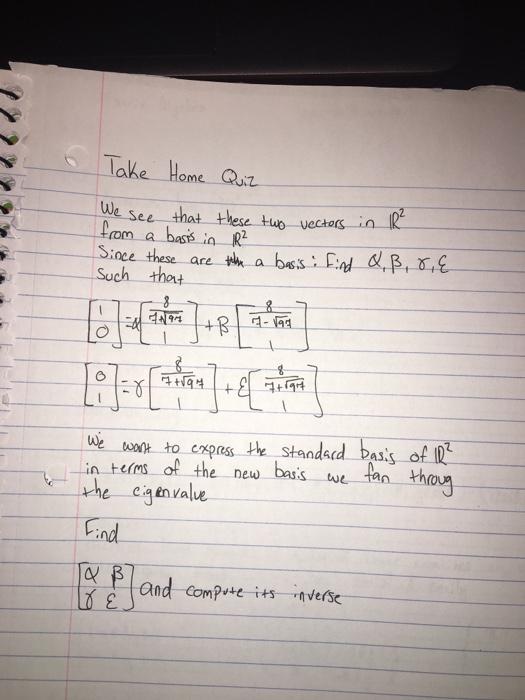 Take Home Quiz
We see that these two vectors in ℝ²
from a basis in ℝ²
Since these are a basis : Find α, β, γ, ε
Such that
[1 0] = α [8/(7+√97) 1] + β [8/(7-√97) 1]
[0 1] = γ [8/(7+√97) 1] + ε [8/(7+√97) 1]
We want to express the standard basis of ℝ²
in terms of the new basis we fan throug
the eigenvalue
Find
[α β γ ε] and compute its inverse